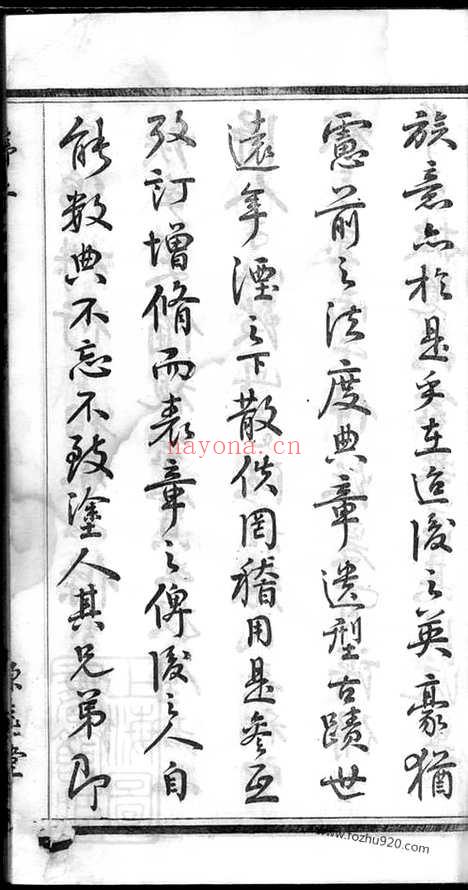 族意亦於是乎在迨後之英豪猶
慮前之法度典章遺型古蹟世
遠年湮之下散佚罔稽用是參互
攷訂增脩而表章之俾後之人自
能數典不忘不致塗人其兄弟即
nayona.cn
www.fozhu920.com